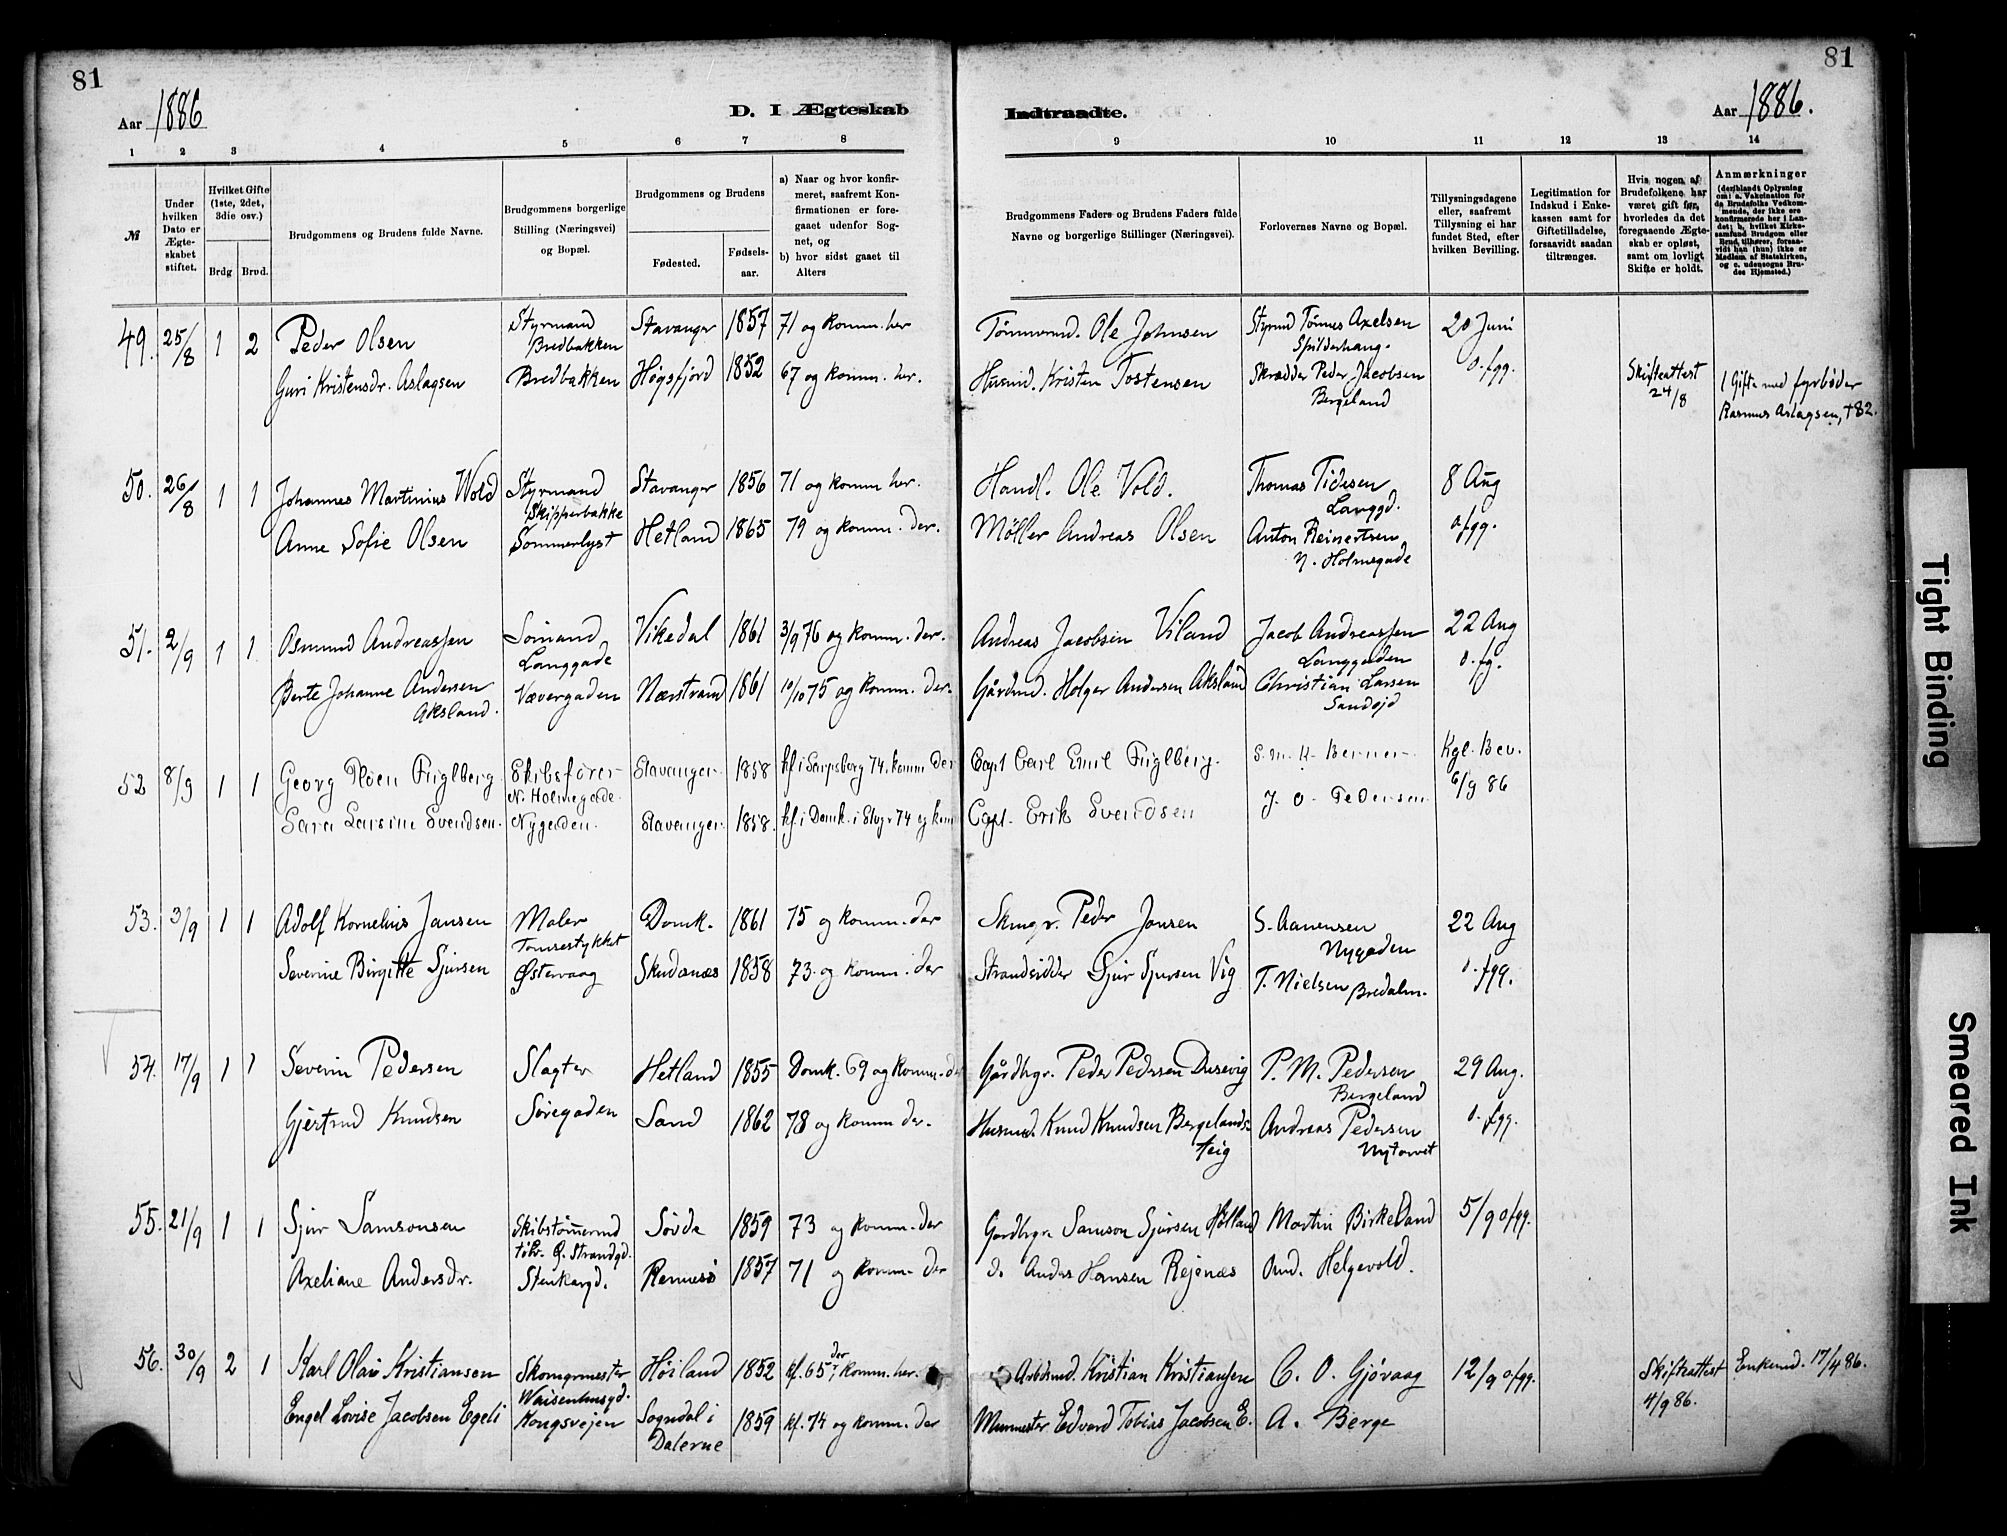 81
81
Aar 1886
D. I Ægteskab
Indtraadte.
Aar 1886.
1 2 3 4 5 6 7 8
9 10 11 12 13 14
№
Under hvilken Dato er Ægteskabet stiftet.
Hvilket Gifte (1ste, 2det, 3die osv.)
Brdg. Brud.
Brudgommens og Brudens fulde Navne.
Brudgommens borgerlige Stilling (Næringsvei) og Bopæl.
Brudgommens og Brudens
Fødested.
Fødselsaar.
a) Naar og hvor konfirmeret, saafremt Konfirmationen er foregaaet udenfor Sognet, og
b) hvor sidst gaaet til Alters
Brudgommens Faders og Brudens Faders fulde Navne og borgerlige Stillinger (Næringsvei).
Forlovernes Navne og Bopæl.
Tillysningsdagene eller, saafremt Tillysning ei har fundet Sted, efter hvilken Bevilling.
Legitimation for Indskud i Enkekassen samt for Giftetilladelse, forsaavidt saadan tiltrænges.
Hvis nogen af Brudefolkene har været gift før, hvorledes da det foregaaende Ægteskab er opløst, samt om lovligt Skifte er holdt.
Anmærkninger (deriblandt Oplysning om: a. Vakcination for de Brudefolks Vedkommende, der ikke ere konfirmerede her i Landet; b. hvilket Kirkesamfund Brudgom eller Brud tilhører, forsaavidt han (hun) ikke er Medlem af Statskirken, og c. udensogns Brudes Hjemsted.)
49. 25/8 1 2 Peder Olsen Styrmand Bredbakken Stavanger 1857 71 og komm. her Tømmermd. Ole Johnsen Styrmd Tønnes Axelsen Spilderhaug. 20 Juni
Guri Kristensdr. Aslagsen Bredbakken Høgsfjord 1852 67 og komm. her. Husmd. Kristen Tostensen Skrædder Peder Jacobsen Bergeland o. fgg. Skifteattest 24/8 Gift med fyrbøder Rasmus Aslagsen, †82.
50. 26/8 1 1 Johannes Martinius Wold Styrmand Skipperbakke Stavanger 1856 71 og komm her. Handl. Ole Vold. Thomas Tidesen Langgd. 8 Aug
Anne Sofie Olsen Sommerlyst Hetland 1865 79 og komm. der. Møller Andreas Olsen Anton Reinertsen N. Holmegade o. fgg.
51. 2/9 1 1 Osmund Andreassen Sømand Langgade Vikedal 1861 3/9 76 og komm. der. Andreas Jacobsen Viland Jacob Andreassen Langgaden 22 Aug
Berte Johanne Andersen Aksland. Vævergaden Nærstrand 1861 10/10 75 og komm. der. Gårdmd. Holger Andersen Aksland Christian Larsen Sandøjd o. fg.
52 8/9 1 1 Georg Ploen Fuglberg Skibsfører N. Holmegade. Stavanger 1858 kf. i Sarpsborg 74. komm der Capt Carl Emil Fuglberg. S. M. K. Berner Kgl. Bev.
Sara Larsine Svendsen. Nygaden. Stavanger 1858. kf. i Domk. i Stvgr 74 og kom Capt. Erik Svendsen J. O. Pedersen 6/9 86
53. 3/9 1 1 Adolf Kornelius Jansen Maler Tomsestykket Domk. 1861 75 og komm. der Skmgr. Peder Jansen S. Aanensen Nygaden 22 Aug
Severine Birgitte Sjursen Østervaag Skudenæs 1858 73. og komm. der Strandsidder Sjur Sjursen Vig T. Nielsen Bredalm. o. fgg.
54. 17/9 1 1 Severin Pedersen Slagter Hetland 1855 Domk. 69 og komm. der Gårdbgr. Peder Pedersen Dusevig P. M. Pedersen Bergeland 29 Aug.
Gjertrud Knudsen Søregaden Sand 1862 78 og komm der. Husmd. Knud Knudsen Bergelandsteig Andreas Pedersen Nytorvet o. fgg.
55. 21/9 1 1 Sjur Samsonsen Skibstømmermd Ø. Strandgd. Søvde 1859 73 og komm. der Gardbgr. Samson Sjursen Hølland Martin Birkeland 5/9 o fgg.
Axeliane Andersdr. Stenkargd. Rennesø 1857 71 og komm. der d. Anders Hansen Rejenæs And. Helgevold.
56. 30/9 2 1 Karl Olai Kristiansen Skomgrmester Waisenhusgd. Høiland 1852 kf. 65 der, komm. her. Arbdsmd. Kristian Kristiansen C. O. Gjøvaag 12/9 o fgg. Skifteattest 4/9 86. Enkemd. 17/4 86.
Engel Lovise Jacobsen Egeli Kongsvejen Sogndal i Dalerne 1859 kf. 74 og komm. der Murmester Edvard Tobias Jacobsen E. A. Berge
Tight Binding
Smeared Ink